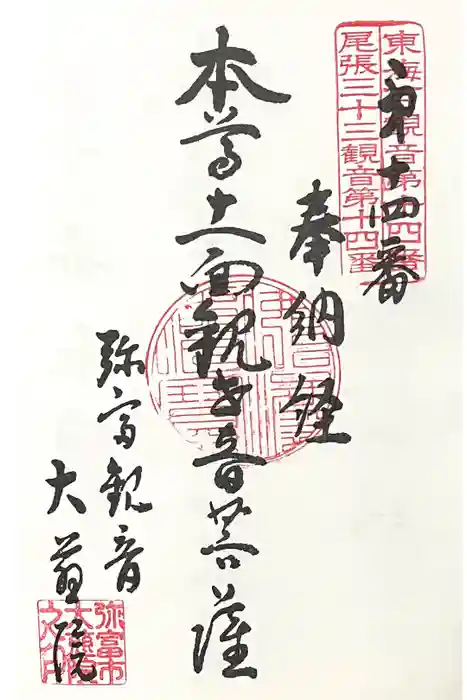 東海観音第十四番
尾張三十三観音第十四番
第十四番
奉納経
本尊十一面観世音菩薩
弥富観音
大慈院
弥富市